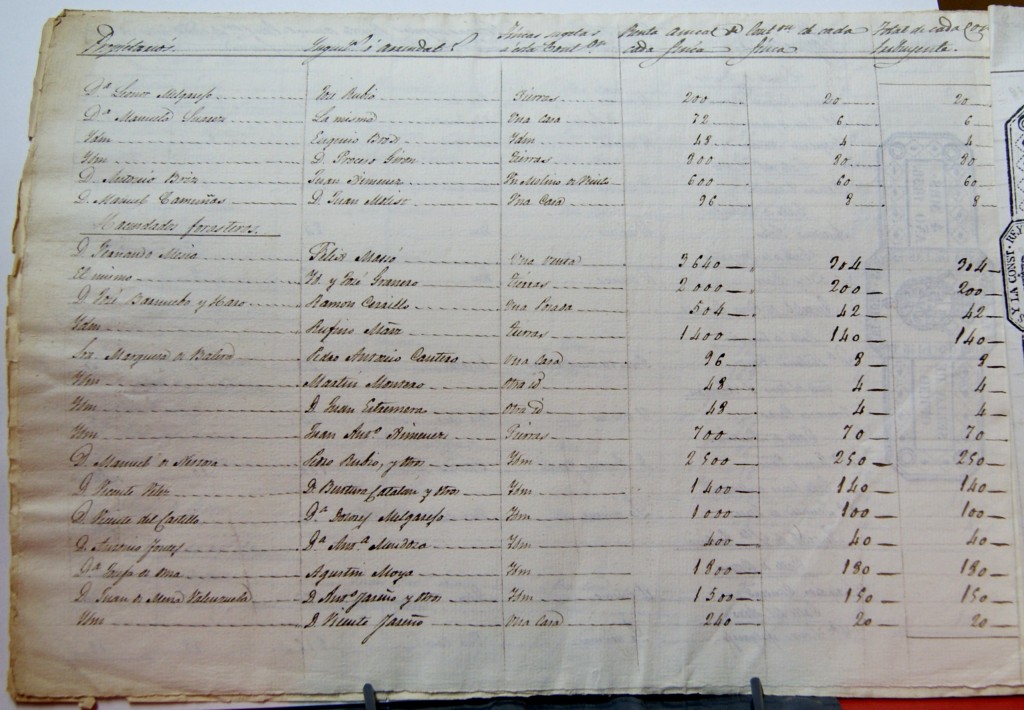 Propietarios. Inquin.s ó Arrendat.s Fincas sugetas á esta Cont.on Renta anual de cada finca Cont.on de cada finca Total de cada Contribuyente.
D.a Leonor Melgarejo José Rubio Tierras 200 20 20
D.a Manuela Suarez La misma Una Casa 72 6 6
Ydm Eugenio Ydm 48 4 4
Ydm D. Giron Tierras 200 20 20
D. Antonio Briz Juan Ximenez Un Molino de 600 60 60
D. Manuel Camuñas D. Juan Una Casa 96 8 8
Hacendados forasteros.
D. Fernando Mesia Felix Masó Una Venta 3640 304 304
El mismo Yd. y José Granero Tierras 2000 200 200
D. José Barnuevo y Haro Ramon Carrillo Una Posada 504 42 42
Ydm Rufino Tierras 1400 140 140
Sra Marquesa de Pedro Antonio Cantero Una Casa 96 8 8
Ydm Martin Montero Otra id 48 4 4
Ydm D. Juan Estremera Otra id 48 4 4
Ydm Juan Ant.o Ximenez Tierras 700 70 70
D. Manuel de Rubio, y otros Ydm 2500 250 250
D. Vicente D. Catalan y otros Ydm 1400 140 140
D. Vicente del Castillo D.a Dolores Melgarejo Ydm 1000 100 100
D. Antonio D.a Ant.a Mendoza Ydm 400 40 40
D.a Agustin Moya Ydm 1800 180 180
D. Juan de Mena Valenzuela D. Ant.o Jareño y otros Ydm 1500 150 150
Ydm D. Vicente Jareño Una Casa 240 20 20
Y LA CONST.